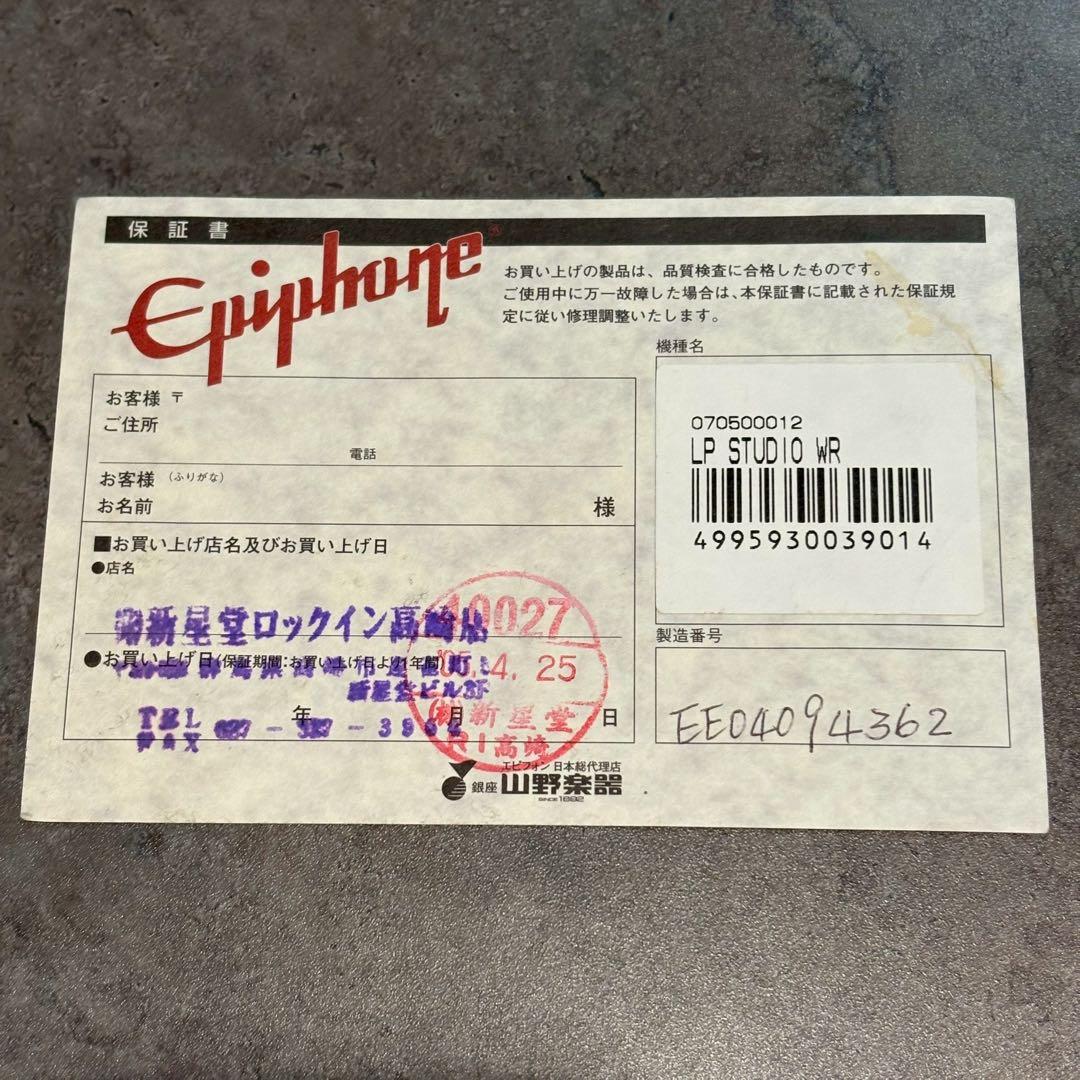 保証書
Epiphone®
お買い上げの製品は、品質検査に合格したものです。
ご使用中に万一故障した場合は、本保証書に記載された保証規
定に従い修理調整いたします。
機種名
070500012
LP STUDIO WR
4995930039014
お客様 〒
ご住所
電話
お客様 (ふりがな)
お名前 様
■お買い上げ店名及びお買い上げ日
●店名
新星堂ロックイン高崎店
●お買い上げ日(保証期間:お買い上げ日より1年間)
新星堂ビル3F
年 月 日
TEL
FAX
10027
'05.4.25
(株)新星堂
RI高崎
製造番号
EE04094362
エピフォン 日本総代理店
銀座 山野楽器
SINCE 1892